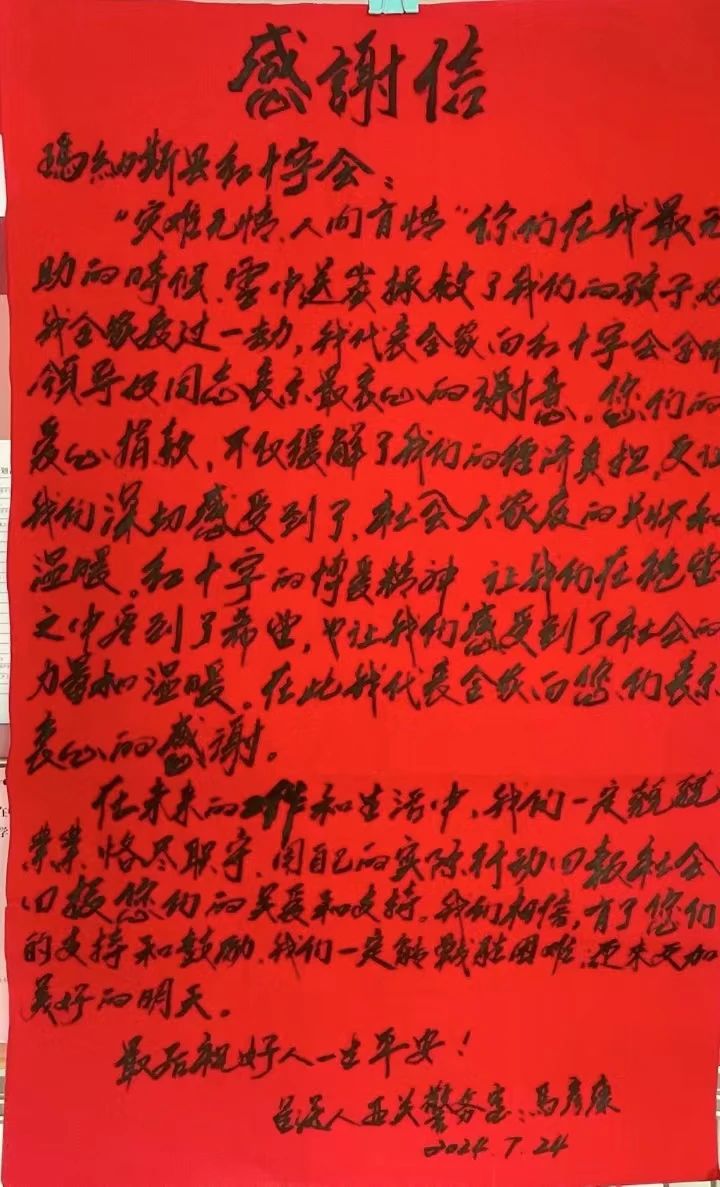 感謝信
瑪納斯县红十字会：
“灾难无情、人间有情”你们在我最无
助的時候、雪中送炭拯救了我们的孩子,
我全家度过一劫，我代表全家向红十字会全体
領导及同志表示最衷心的謝意。您们的
爱心捐款，不仅缓解了我们的经济负担，更让
我们深切感受到了，社会大家庭的关怀和
温暖。红十字的博爱精神，让我们在绝望
之中看到了希望，也让我们感受到了社会的
力量和温暖。在此我代表全家向您们表示
衷心的感谢。
在未来的工作和生活中，我们一定兢兢
業業，恪尽职守、用自己的实际行动回报社会
回报您们的关爱和支持。我们相信，有了您们
的支持和鼓励，我们一定能戰胜困难，迎来更加
美好的明天。
最后祝好人一生平安！
呈送人西关警务室：馬彦康
2024.7.24